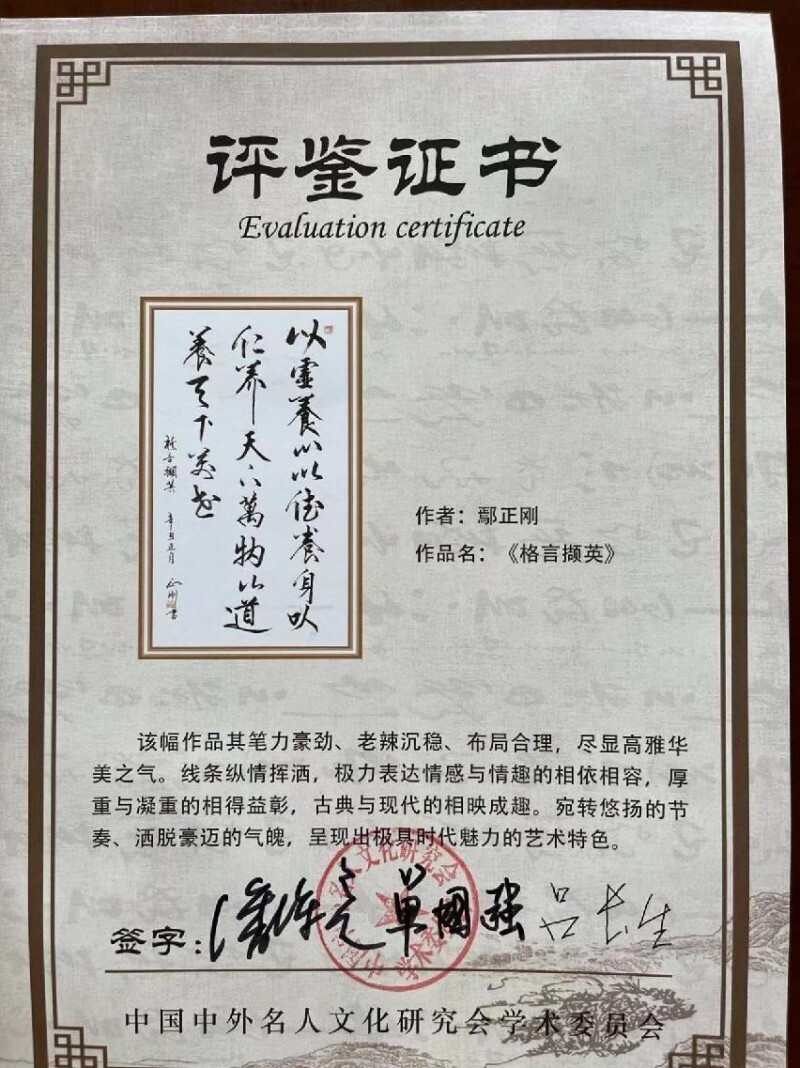 评鉴证书
Evaluation certificate
以虚養心以德養身以
仁养天下萬物以道
養天下萬世
格言擷英 辛丑五月 正刚書
作者：鄢正刚
作品名：《格言撷英》
该幅作品其笔力豪劲、老辣沉稳、布局合理，尽显高雅华
美之气。线条纵情挥洒，极力表达情感与情趣的相依相容，厚
重与凝重的相得益彰，古典与现代的相映成趣。宛转悠扬的节
奏、洒脱豪迈的气魄，呈现出极具时代魅力的艺术特色。
签字： 單國强
中国中外名人文化研究会学术委员会